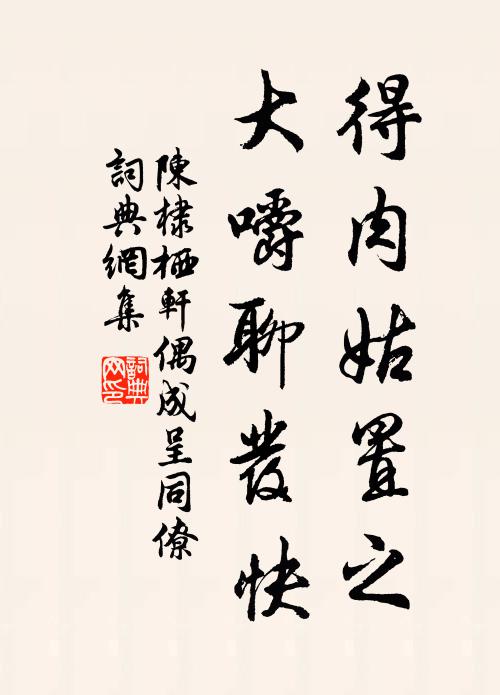 得肉姑置之
大嚼聊發快
陳棣栖軒偶成呈同僚
詞典網集
詞典網印